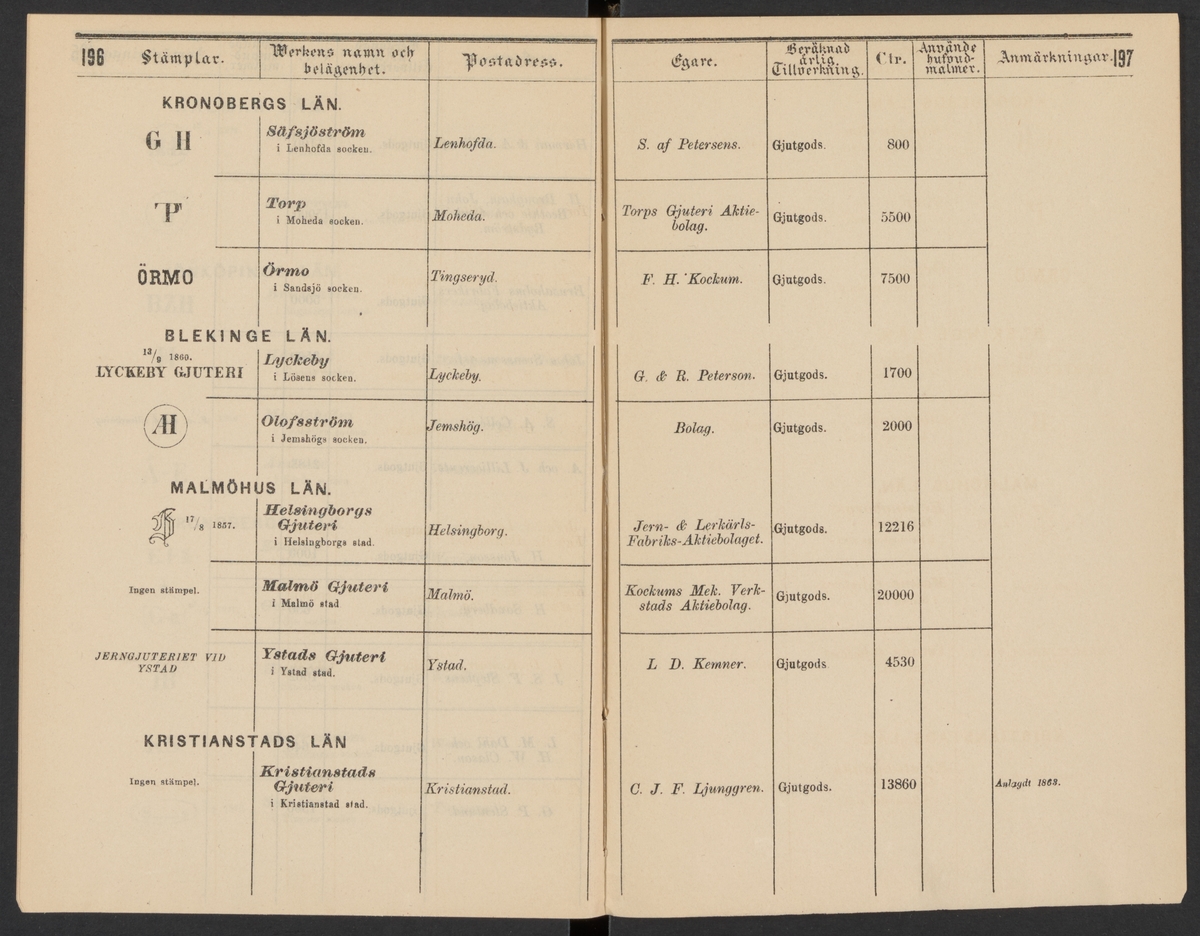 196 Stämplar. Werkens namn och belägenhet. Postadress. Egare. Beräknad årlig Tillverkning. Ctr. Använde hufvudmalmer. Anmärkningar. 197
KRONOBERGS LÄN.
G H Säfsjöström Lenhofda. S. af Petersens. Gjutgods. 800
i Lenhofda socken.
P Torp Moheda. Torps Gjuteri Aktie- Gjutgods. 5500
i Moheda socken. bolag.
ÖRMO Örmo Tingseryd. F. H. Kockum. Gjutgods. 7500
i Sandsjö socken.
BLEKINGE LÄN.
13/9 1860. Lyckeby
LYCKEBY GJUTERI i Lösens socken. Lyckeby. G. & R. Peterson. Gjutgods. 1700
ÆH Olofsström Jemshög. Bolag. Gjutgods. 2000
i Jemshögs socken.
MALMÖHUS LÄN.
17/8 1857. Helsingborgs Jern- & Lerkärls-
Gjuteri Helsingborg. Fabriks-Aktiebolaget. Gjutgods. 12216
i Helsingborgs stad.
Ingen stämpel. Malmö Gjuteri Malmö. Kockums Mek. Verk- Gjutgods. 20000
i Malmö stad stads Aktiebolag.
JERNGJUTERIET VID Ystads Gjuteri Ystad. L D. Kemner. Gjutgods 4530
YSTAD i Ystad stad.
KRISTIANSTADS LÄN
Ingen stämpel. Kristianstads
Gjuteri Kristianstad. C. J. F. Ljunggren. Gjutgods. 13860 Anlagdt 1863.
i Kristianstad stad.